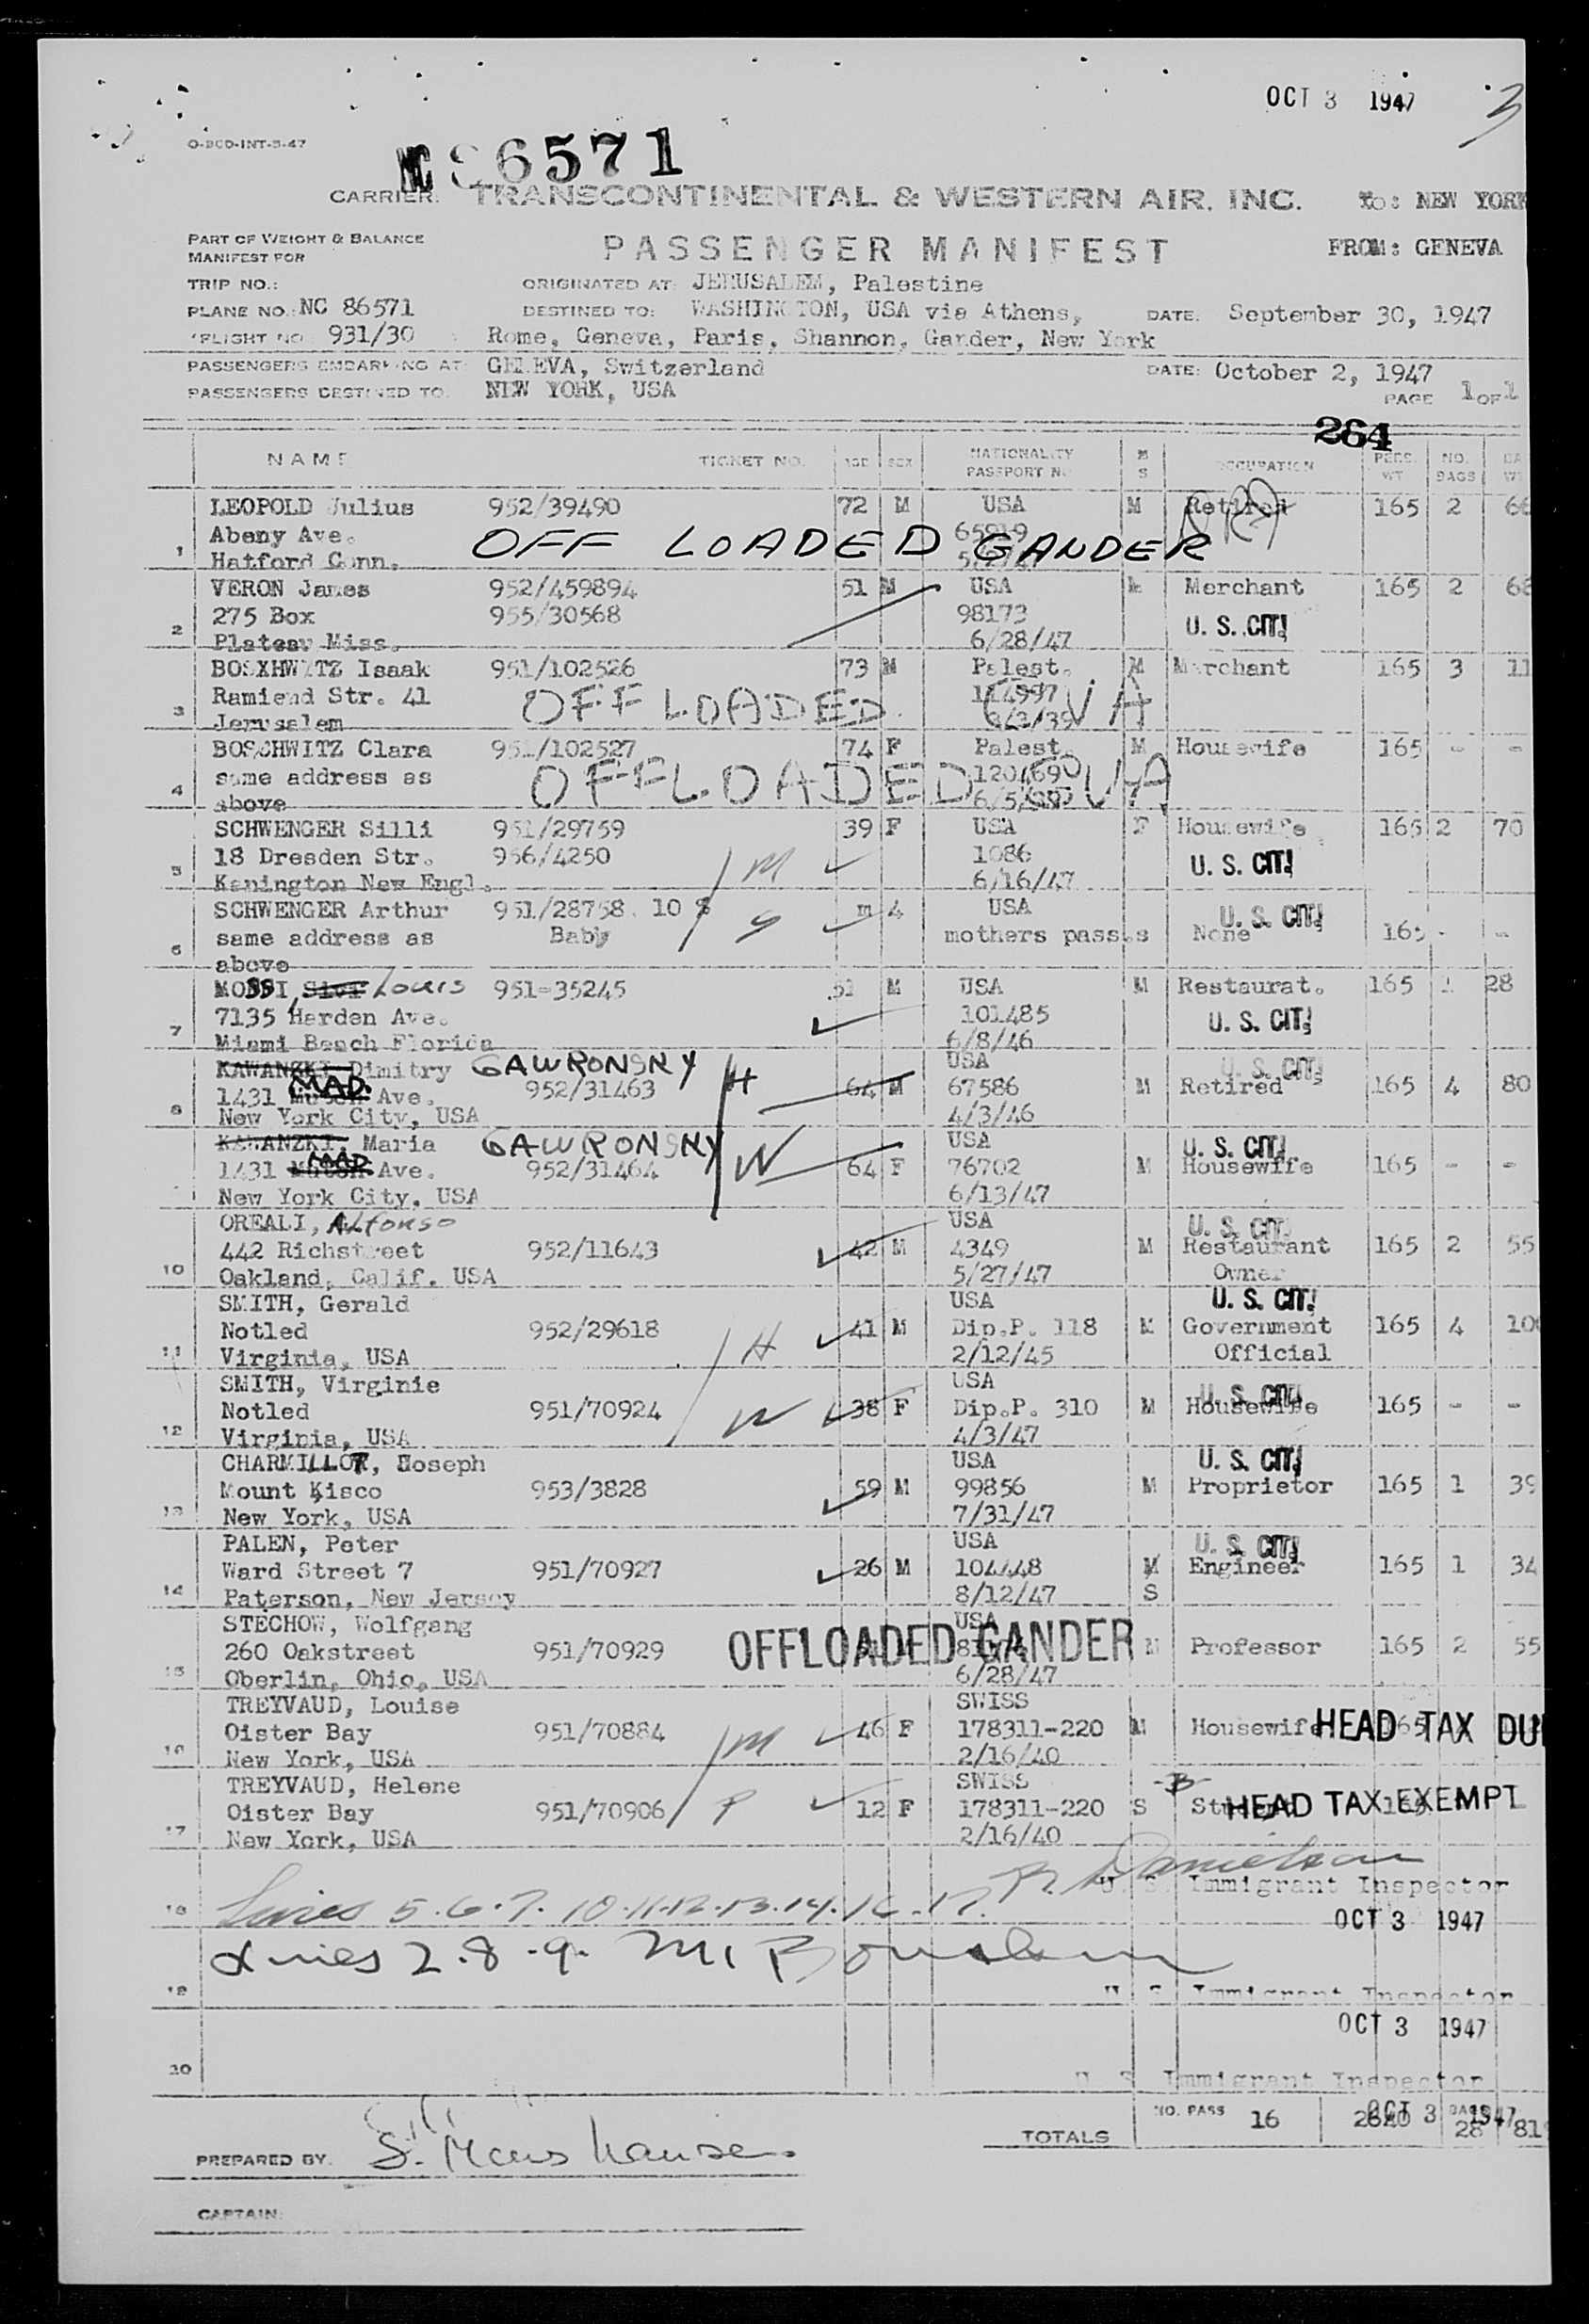 OCT 3 1947 3
O-BCD-INT-5-47
NC 86571
CARRIER: TRANSCONTINENTAL & WESTERN AIR, INC. to: NEW YORK
PART OF WEIGHT & BALANCE
MANIFEST FOR
PASSENGER MANIFEST FROM: GENEVA
TRIP NO.: ORIGINATED AT: JERUSALEM, Palestine
PLANE NO.: NC 86571 DESTINED TO: WASHINGTON, USA via Athens, DATE: September 30, 1947
FLIGHT NO. 931/30 Rome, Geneva, Paris, Shannon, Gander, New York
PASSENGERS EMBARKING AT: GENEVA, Switzerland DATE: October 2, 1947
PASSENGERS DESTINED TO: NEW YORK, USA PAGE 1 OF 1
264
NAME TICKET NO. AGE SEX NATIONALITY PASSPORT NO. M S OCCUPATION PERS. WT NO. BAGS BA WT
LEOPOLD Julius 952/39490 72 M USA M Retired 165 2 66
Abeny Ave.
1 Hatford Conn.
OFF LOADED GANDER
VERON James 952/459894 51 M USA Merchant 165 2 68
275 Box 955/30568 98173 U. S. CIT.
2 Plateau Miss. 6/28/47
BOSXHWITZ Isaak 951/102526 73 M Palest. M Merchant 165 3 11
Ramiend Str. 41 114997
3 Jerusalem 3/3/39
OFF LOADED GVA
BOSCHWITZ Clara 951/102527 74 F Palest. M Housewife 165 - -
same address as
4 above
OFFLOADED GVA
SCHWENGER Silli 951/29759 39 F USA F Housewife 165 2 70
18 Dresden Str. 956/4250 M 1086 U. S. CIT.
5 Kenington New Engl. 6/16/47
SCHWENGER Arthur 951/28758. 10 % m 4 USA U. S. CIT.
same address as Baby S mothers pass.s None 165 - -
6 above
MOSSI, Sivi Louis 951-35245 51 M USA M Restaurat. 165 1 28
7135 Harden Ave. 101485 U. S. CIT.
7 Miami Beach Florida 6/8/46
KAWANZKI Dimitry GAWRONSKY USA U. S. CIT.
1431 MAD. Ave. 952/31463 H 64 M 67586 M Retired 165 4 80
8 New York City, USA 4/3/46
KAWANZKI, Maria GAWRONSKY USA U. S. CIT.
1431 MAD Ave. 952/31464 W 64 F 76702 M Housewife 165 - -
New York City, USA 6/13/47
OREALI, Alfonso USA U. S. CIT.
442 Richstreet 952/11643 42 M 4349 M Restaurant 165 2 55
10 Oakland, Calif. USA 5/27/47 Owner
SMITH, Gerald USA U. S. CIT.
Notled 952/29618 H 41 M Dip.P. 118 M Government 165 4 100
11 Virginia, USA 2/12/45 Official
SMITH, Virginie USA U. S. CIT.
Notled 951/70924 W 38 F Dip.P. 310 M Housewife 165 - -
12 Virginia, USA 4/3/47
CHARMILLOT, Joseph USA U. S. CIT.
Mount Kisco 953/3828 59 M 99856 M Proprietor 165 1 39
13 New York, USA 7/31/47
PALEN, Peter USA U. S. CIT.
Ward Street 7 951/70927 26 M 104448 M Engineer 165 1 34
14 Paterson, New Jersey 8/12/47 S
STECHOW, Wolfgang USA
260 Oakstreet 951/70929 OFFLOADED GANDER M Professor 165 2 55
15 Oberlin, Ohio, USA 6/28/47
TREYVAUD, Louise SWISS
Oister Bay 951/70884 M 46 F 178311-220 M Housewife HEAD TAX DUE
16 New York, USA 2/16/40
TREYVAUD, Helene SWISS -B-
Oister Bay 951/70906 P 12 F 178311-220 S Student HEAD TAX EXEMPT
17 New York, USA 2/16/40
U. S. Immigrant Inspector
18 Lines 5.6.7.10.11.12.13.14.16.17. OCT 3 1947
Lines 2.8.9.
19 U S Immigrant Inspector
OCT 3 1947
20 U S Immigrant Inspector
TOTALS NO. PASS 16 2640 OCT 3 1947 BAGS 28 81
PREPARED BY:
CAPTAIN: